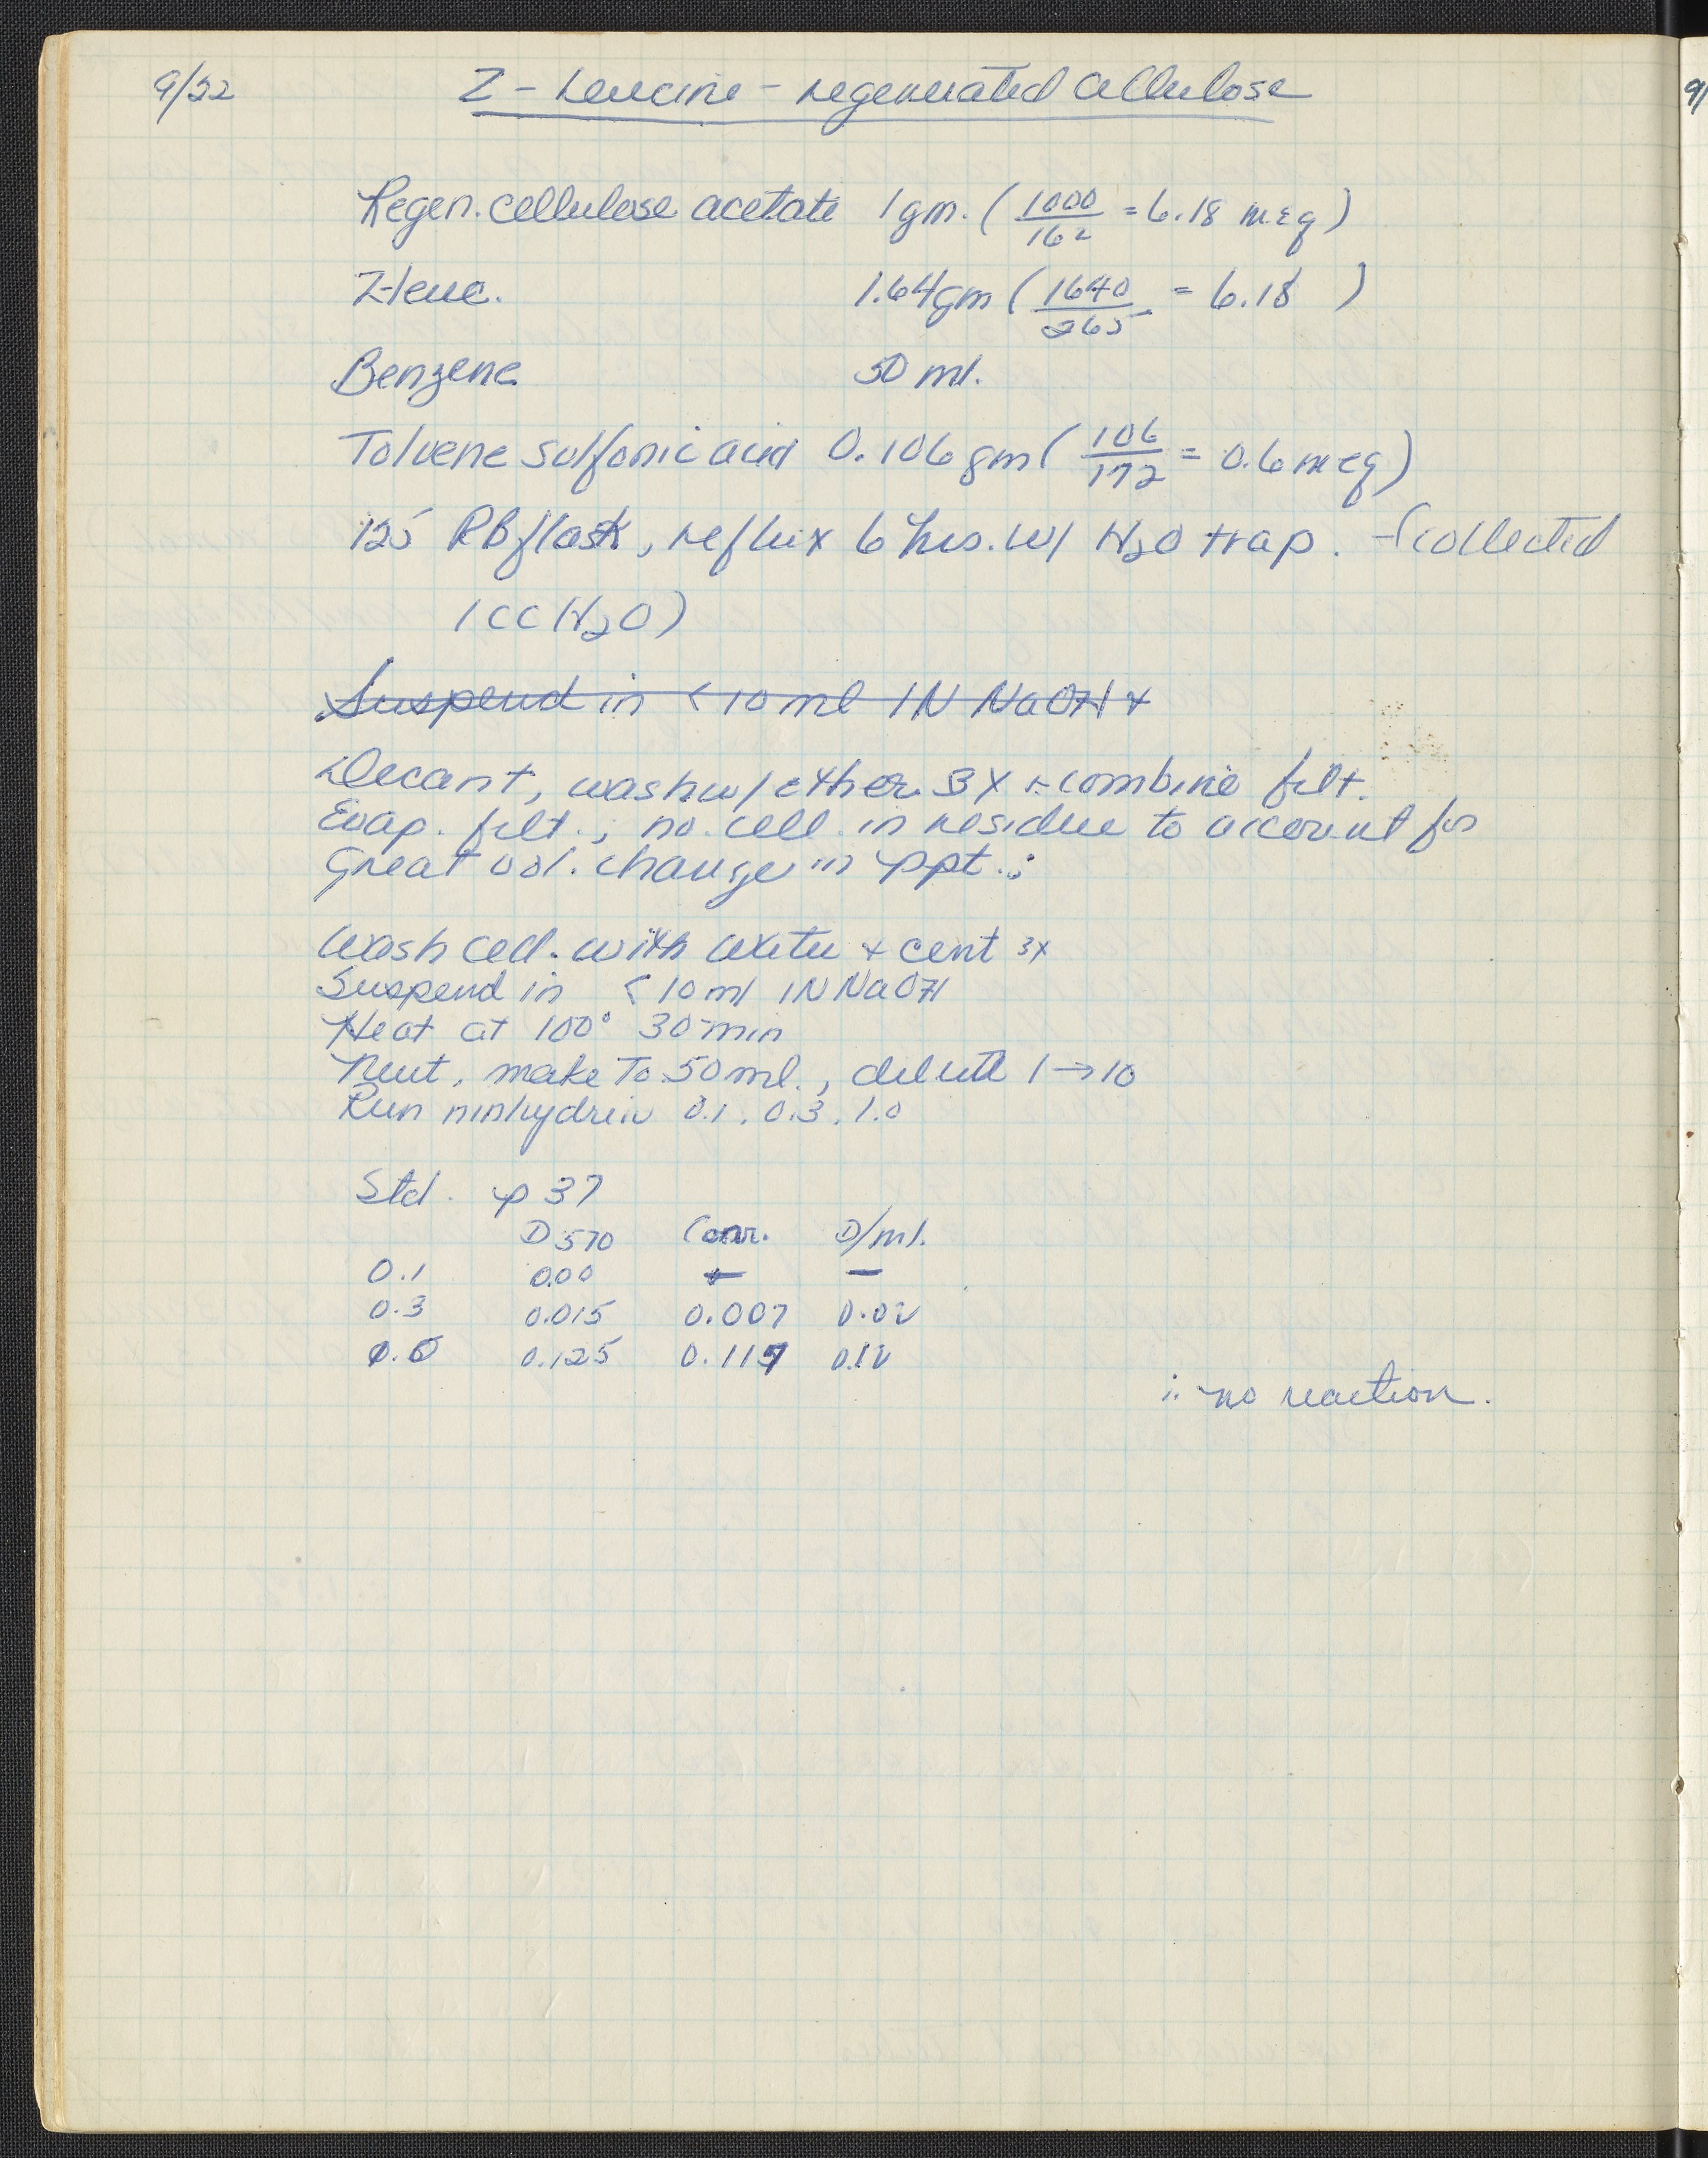 9/22 Z-Leucine-regenerated cellulose
Regen. cellulose acetate 1 gm. (1000/162 = 6.18 meq)
Z-leuc. 1.64 gm (1640/265 = 6.18 )
Benzene 50 ml.
Toluene sulfonic acid 0.106 gm (106/172 = 0.6 meq)
125 RB flask, reflux 6 hrs. w/ H2O trap. (collected
1 cc H2O)
Suspend in < 10 ml 1N NaOH +
Decant, wash w/ ether 3X + combine filt.
Evap. filt., no cell. in residue to account for
great vol. change in ppt.
Wash cell. with water + cent 3x
Suspend in < 10 ml 1N NaOH
Heat at 100° 30 min
Neut, make to 50 ml., dilute 1→10
Run ninhydrin 0.1, 0.3, 1.0
Std. p 37
D570 Corr. D/ml.
0.1 0.00 — —
0.3 0.015 0.007 0.02
0.125 0.117 0.12
∴ no reaction.